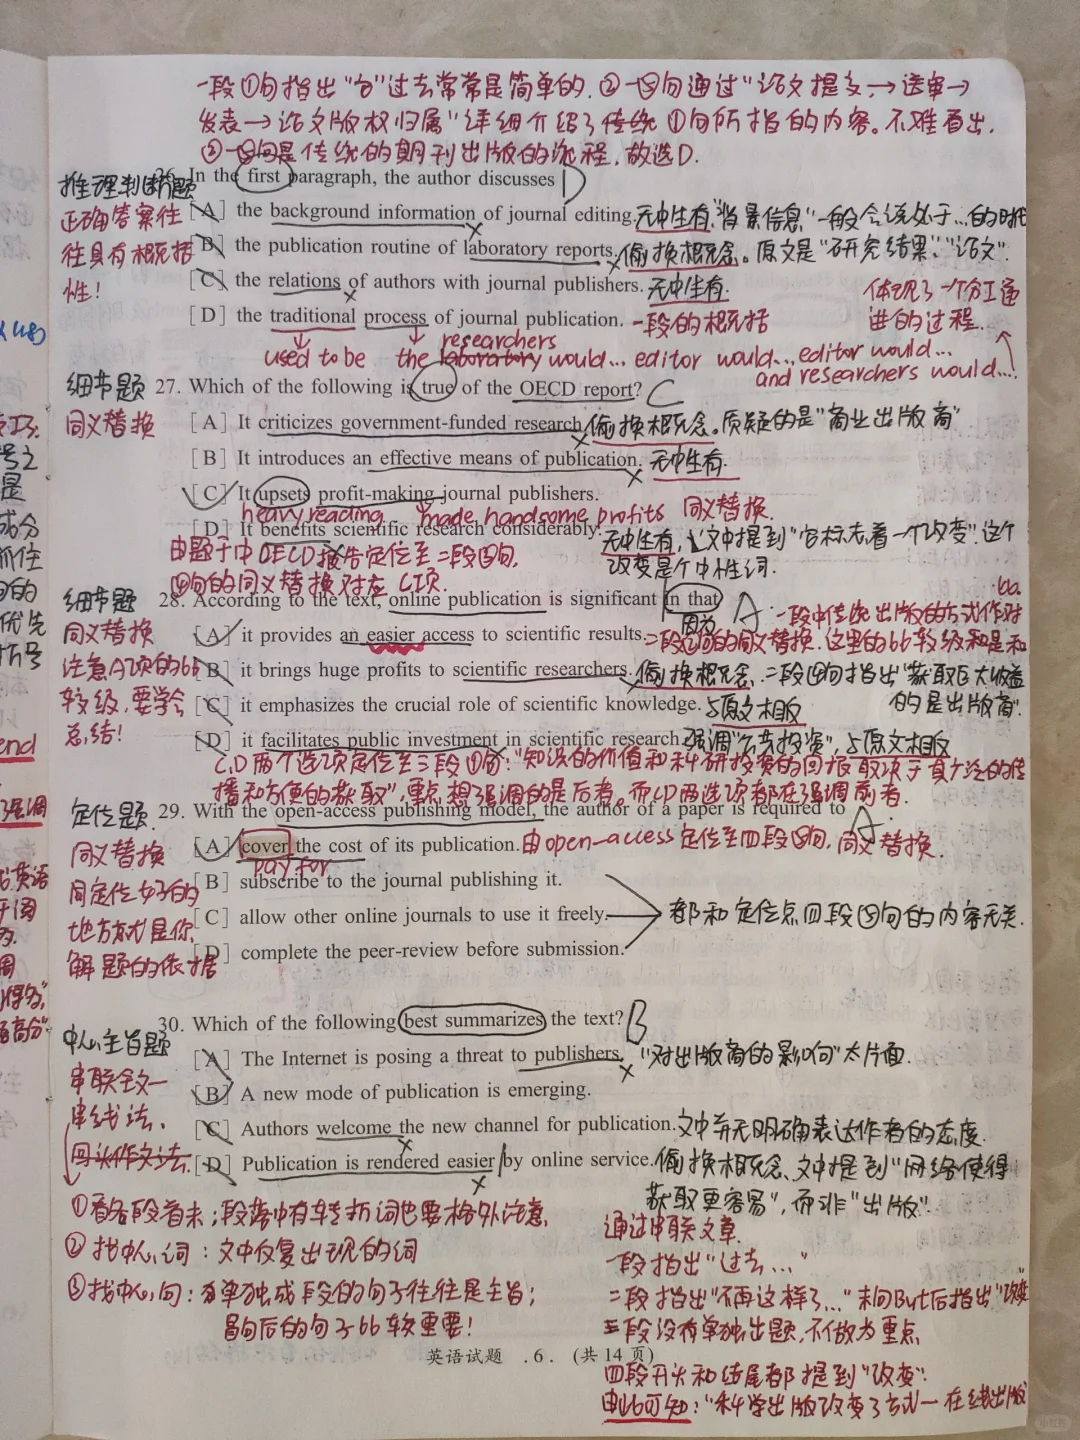 一段①句指出“它”过去常常是简单的.②—⑤句通过“论文提交→送审→
发表→论文版权归属”详细介绍了传统①句所指的内容。不难看出,
②—⑤句是传统的期刊出版的流程,故选D.
推理判断题
正确答案往
往具有概括
性!
26. In the first paragraph, the author discusses D
[A] the background information of journal editing. 无中生有.“背景信息”一般会谈处于…的时代
[B] the publication routine of laboratory reports. 偷换概念。原文是“研究结果”“论文”.
[C] the relations of authors with journal publishers. 无中生有.
体现了一个分工递
进的过程.
[D] the traditional process of journal publication. 一段的概括
used to be the laboratory researchers would... editor would... editor would...
and researchers would...
细节题
同义替换
27. Which of the following is true of the OECD report? C
[A] It criticizes government-funded research. 偷换概念。质疑的是“商业出版商”
[B] It introduces an effective means of publication. 无中生有.
[C] It upsets profit-making journal publishers.
heavy reading made handsome profits 同义替换.
[D] It benefits scientific research considerably. 无中生有,文中提到“它标志着一个改变”.这个
改变是个中性词.
由题干中OECD报告定位至二段④句.
④句的同义替换对应C项.
细节题
同义替换
注意A项的比
较级,要学会
总结!
28. According to the text, online publication is significant in that A
因为
一段中传统出版的方式作对比.
[A] it provides an easier access to scientific results. 二段②句的同义替换.这里的比较级和是和
[B] it brings huge profits to scientific researchers. 偷换概念.二段④句指出“获取巨大收益
的是出版商”.
[C] it emphasizes the crucial role of scientific knowledge. 与原文相反
[D] it facilitates public investment in scientific research. 强调“公共投资”,与原文相反
C,D两个选项定位至三段①句:“知识的价值和科研投资的回报取决于其广泛的传
播和方便的获取”,重点想强调的是后者,而CD两选项都在强调前者.
定位题
同义替换
同定位好的
地方就是你
解题的依据
29. With the open-access publishing model, the author of a paper is required to A
[A] cover the cost of its publication. 由open-access定位至四段⑤句,同义替换.
pay for
[B] subscribe to the journal publishing it.
[C] allow other online journals to use it freely. 都和定位点四段⑤句的内容无关.
[D] complete the peer-review before submission.
中心主旨题
串联全文—
串线法.
回头作文法.
30. Which of the following best summarizes the text? B
[A] The Internet is posing a threat to publishers. “对出版商的影响”太片面.
[B] A new mode of publication is emerging.
[C] Authors welcome the new channel for publication. 文中并无明确表达作者的态度.
[D] Publication is rendered easier by online service. 偷换概念.文中提到“网络使得
获取更容易”,而非“出版”.
①看各段首末;段落中有转折词也要格外注意.
②找中心词:文中反复出现的词
③找中心句:单独成段的句子往往是主旨;
冒号后的句子比较重要!
通过串联文章.
一段指出“过去...”
二段指出“不再这样了...”末句But后指出“改变”
三段没有单独出题,不做为重点
四段开头和结尾都提到“改变”.
由此可知:“科学出版改变了方式—在线出版
英语试题 .6. (共14页)